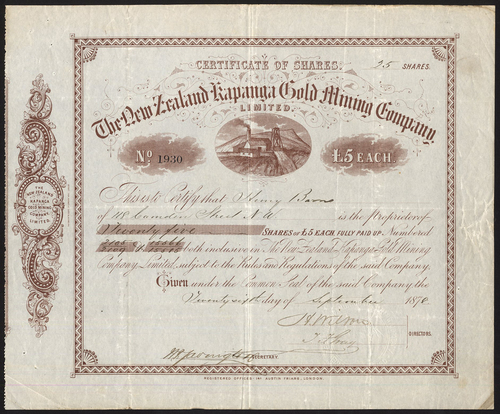 CERTIFICATE OF SHARES. 25 SHARES.
The New Zealand Kapanga Gold Mining Company,
LIMITED.
No 1930
£5 EACH.
THE
NEW ZEALAND
KAPANGA
GOLD MINING
COMPANY
LIMITED
This is to Certify that Henry
of 118 Camden Street N W is the Proprietor of
Twenty five SHARES OF £5 EACH, FULLY PAID UP, Numbered
both inclusive in The New Zealand Kapanga Gold Mining
Company, Limited, subject to the Rules and Regulations of the said Company.
Given under the Common Seal of the said Company the
Twenty sixth day of September 1870
DIRECTORS.
SECRETARY.
REGISTERED OFFICES: AUSTIN FRIARS, LONDON.